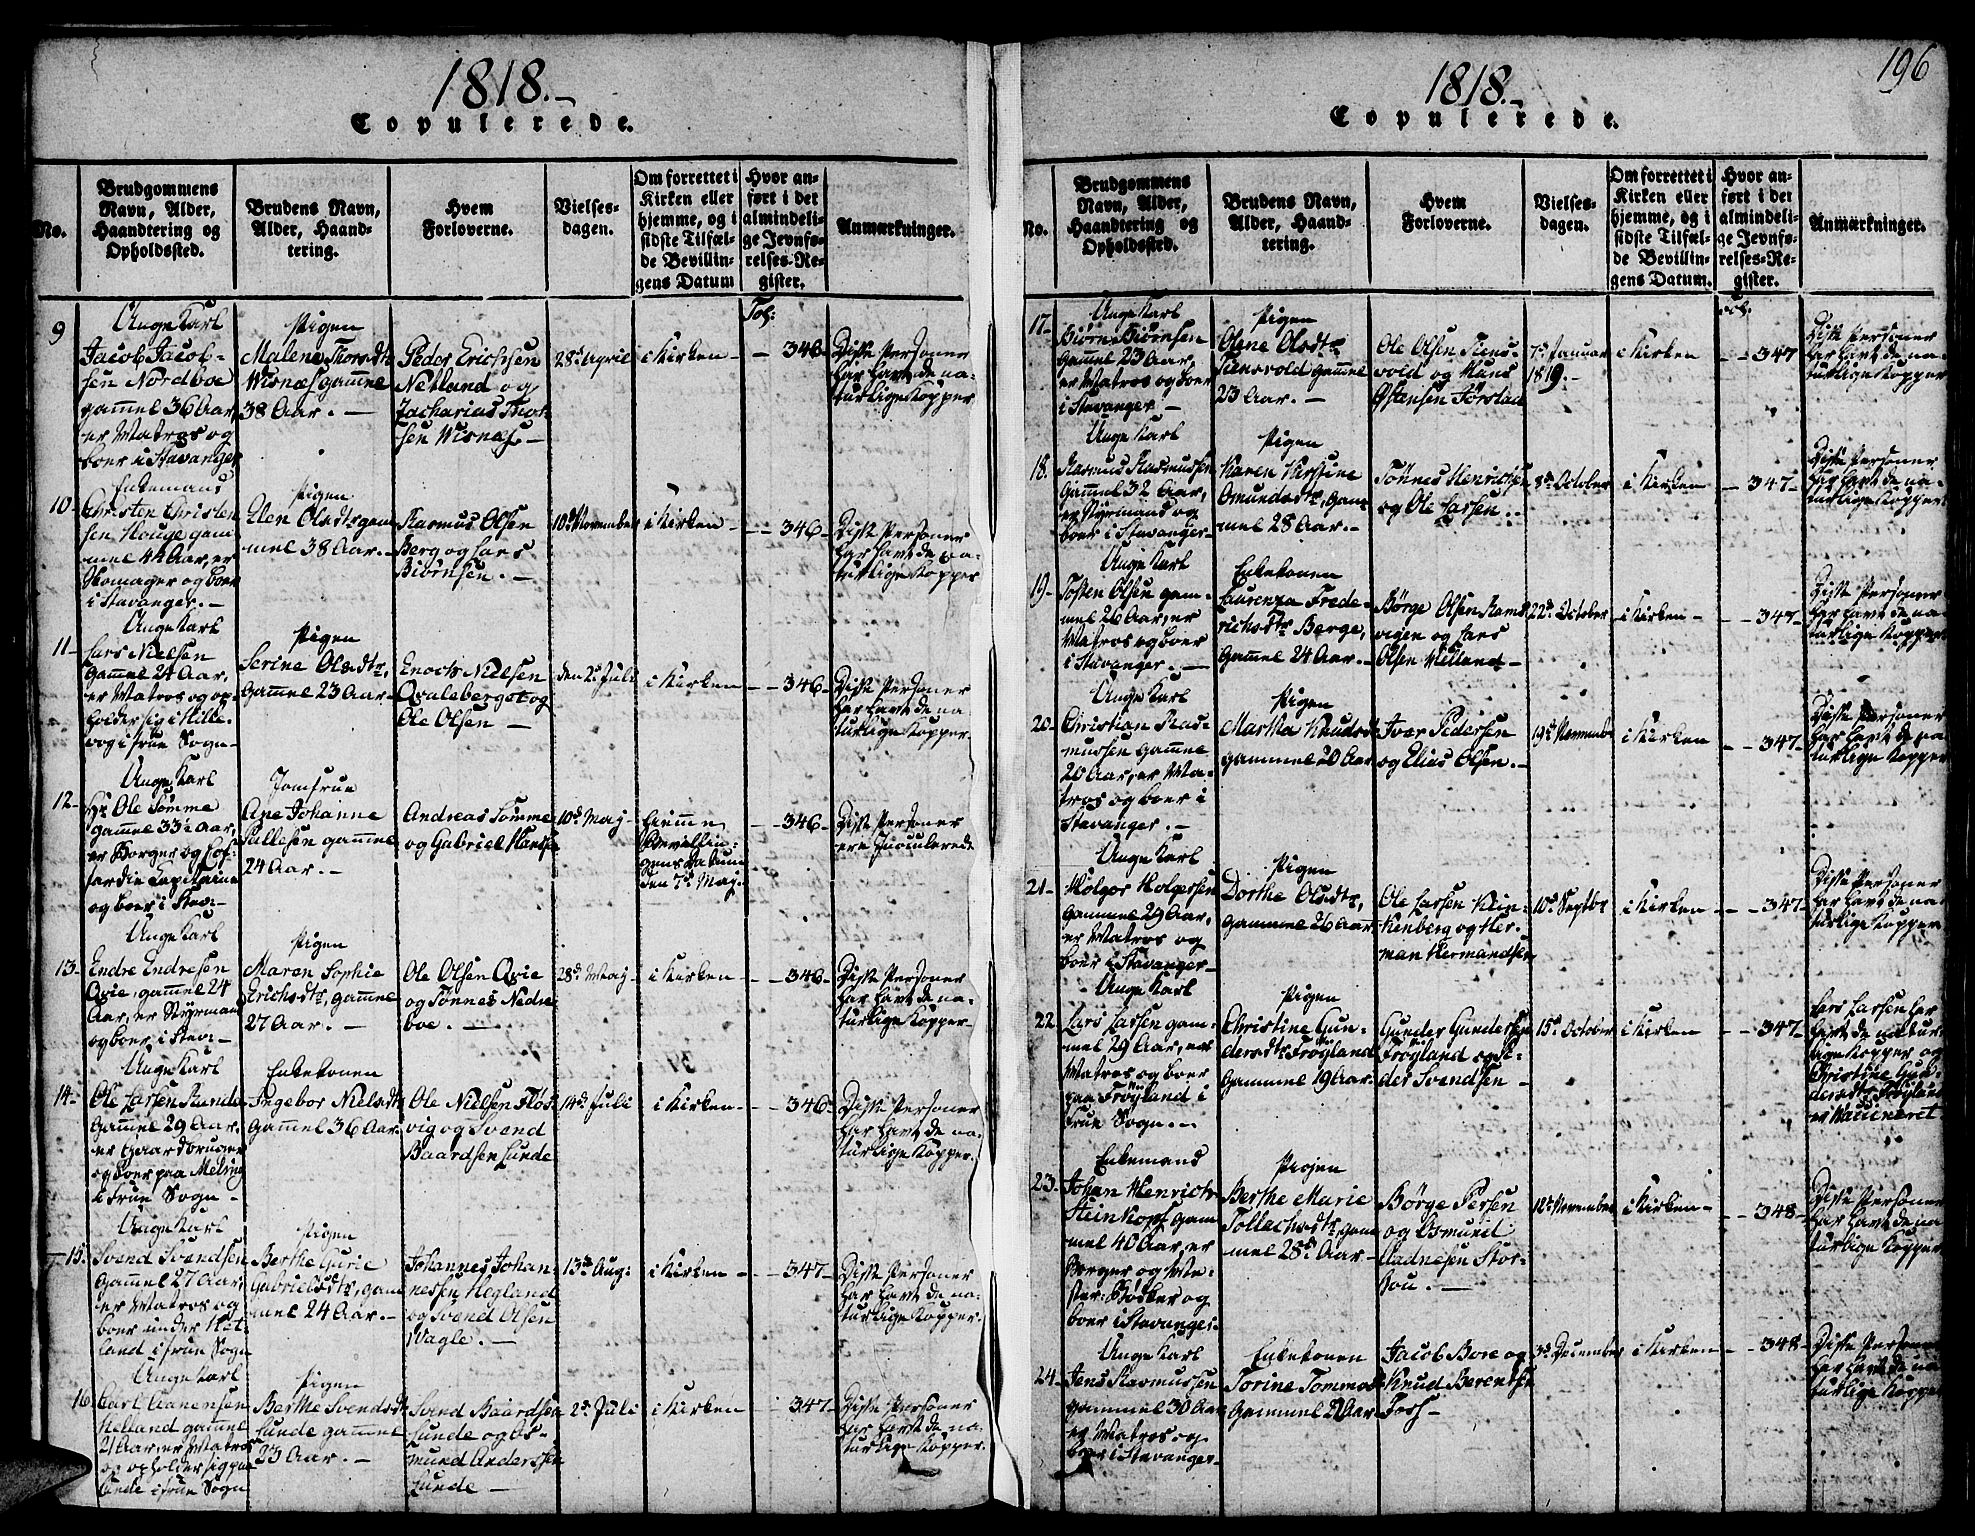 1818.
Copulerede.
No.
Brudgommens
Navn, Alder,
Haandtering og
Opholdssted.
Brudens Navn,
Alder, Haand-
tering.
Hvem
Forloverne.
Vielses-
dagen.
Om forrettet i
Kirken eller
hjemme, og i
sidste Tilfæl-
de Bevillin-
gens Datum
Hvor an-
ført i det
almindeli-
ge Jevnfø-
relses-Re-
gister.
Anmærkninger.
Fol:
9
Unge Karl
Jacob Jacob-
sen Nordboe
gammel 36 Aar,
er Matros og
boer i Stavanger
Pigen
Malene Thorsdtr
Wisnæs gamme
38 Aar. —
Peder Erichsen
Netland og
Zacharias Thor
sen Wisnæs —
28de April
i Kirken —
— 346
Disse Personer
har havt de na-
turlige Kopper
10
Enkemand
Christen Christen
sen Houge gam
mel 44 Aar, er
Skomager og boer
i Stavanger. —
Pigen
Elen Olsdtr gam
mel 38 Aar. —
Rasmus Olsen
Berg og Lars
Biørnsen. —
10de November
i Kirken —
— 346
Disse Personer
har havt de na-
turlige Kopper
11
Unge Karl
Lars Nielsen
gammel 24 Aar,
er Matros og op-
holder sig i Hille-
vog i Frue Sogn —
Pigen
Serine Olsdtr,
gammel 23 Aar —
Enoch Nielsen
Qvaleberget og
Ole Olsen —
den 2de Juli
i Kirken
— 346
Disse Personer
har havt de na
turlige Kopper
12
Unge Karl
Hr Ole Sømme
gammel 33½ Aar,
er Borger og Cof-
fardie Capitaine
og boer i Stav: —
Jomfrue
Ane Johanne
Pallesen gammel
24 Aar. —
Andreas Sømme
og Gabriel Hansen
10de Maj
hiemme
Bevillin-
gens datum
den 7de Maj.
— 346
Disse Personer
ere Inoculerede
13
Unge Karl
Endre Endresen
Qvie, gammel 24
Aar, er Styrmand
og boer i Stav: —
Pigen
Maren Sophie
Erichsdtr, gamme
27 Aar. —
Ole Olsen Qvie
og Tønnes Nedre
boe. —
28de Maj
i Kirken
— 346
Disse Personer
har havt de na-
turlige Kopper
14
Unge Karl
Ole Larsen Runde
gammel 29 Aar
er Gaardbruger
og boer paa Melring
i Frue Sogn —
Enkekonen
Ingebor Nielsdtr
gammel 36 Aar.
Ole Nielsen Fløs
vig og Svend
Baardsen Lunde
14de Juli
i Kirken —
— 346
Disse Personer
har havt de na-
turlige Kopper.
15
Unge Karl
Svend Svendsen
gammel 27 Aar,
er Matros og
boer under Het-
land i Frue Sogn
Pigen
Berthe Gurie
Gabrielsdtr, gam
mel 24 Aar —
Johannes Johan-
nessen Hogland
og Svend Olsen
Vagle. —
13de Aug:
i Kirken —
— 347
Disse Personer
har havt de na-
turlige Kopper.
16
Unge Karl
Carl Aanensen
Helland gammel
21 Aar, er Matros
og opholder sig paa
Lunde i Frue Sogn
Pigen
Berthe Svendsdtr
Lunde gammel
23 Aar. —
Svend Baardsen
Lunde og As-
mund Andersen
Lunde —
2de Juli
i Kirken
— 347
Disse Personer
har havt de na-
turlige Kopper.
196
1818.
Copulerede.
No.
Brudgommens
Navn, Alder,
Haandtering og
Opholdssted.
Brudens Navn,
Alder, Haand-
tering.
Hvem
Forloverne.
Vielses-
dagen.
Om forrettet i
Kirken eller
hjemme, og i
sidste Tilfæl-
de Bevillin-
gens Datum.
Hvor an-
ført i det
almindeli-
ge Jevnfø-
relses-Re-
gister.
Anmærkninger.
Fol.
17
Unge Karl
Biørn Biørnsen
gammel 23 Aar
er Matros og boer
i Stavanger —
Pigen
Olene Olsdtr
Tiensvold gammel
23 Aar. —
Ole Olsen Tiens-
vold og Muns
Østensen Førstad
7de Januar
1819. —
i Kirken
— 347
Disse Personer
har havt de na-
turlige Kopper
18
Unge Karl
Rasmus Rasmussen
gammel 32 Aar,
er Styrmand og
boer i Stavanger —
Pigen
Karen Kirstine
Omundsdtr, gam
mel 28 Aar. —
Tønnes Henrichsen
og Ole Larsen.
8de October
i Kirken
— 347
Disse Personer
har havt de na-
turlige Kopper
19
Unge Karl
Tosten Olsen gam-
mel 26 Aar, er
Matros og boer
i Stavanger. —
Enkekonen
Laurenza Frede-
richsdtr Berge,
gammel 24 Aar. —
Børge Olsen Rams
vigen og Lars
Olsen Melland —
22de October
i Kirken —
— 347
Disse Personer
har havt de na-
turlige Kopper
20
Unge Karl
Christian Ras-
mussen gammel
20 Aar, er Ma-
tros og boer i
Stavanger. —
Pigen
Martha Knudsdtr
gammel 20 Aar
Ivar Pedersen
og Elias Olsen. —
19de November
i Kirken
— 347
Disse Personer
har havt de na
turlige Kopper
21
Unge Karl
Holger Holgersen
gammel 29 Aar,
er Matros og
boer i Stavanger —
Pigen
Dorthe Olsdtr,
gammel 26 Aar
Ole Larsen Klin-
kenberg og Her-
man Hermandsen
10de Septbr
i Kirken
— 347
Disse Personer
har havt de na-
turlige Kopper
22
Unge Karl
Lars Larsen gam-
mel 29 Aar, er
Matros og boer
paa Frøyland i
Frue Sogn. —
Pigen
Christine Gun-
dersdtr Frøyland
gammel 19 Aar.
Gunder Gundersen
Frøyland og
Svendsen —
15de October
i Kirken
— 347
Lars Larsen har
havt de natur-
lige Kopper og
Christine Gun
dersdtr Frøyland
er Vaccineret
23
Enkemand
Johan Henrich
Steinkopf gam
mel 40 Aar, er
Borger og Me-
ster: Bødker og
boer i Stavanger.
Pigen
Berthe Marie
Tollachsdtr, gam
mel 28 Aar —
Børge Persen
og Osmund
Aadnesen Stor-
hou. —
12de November
i Kirken
— 348
Disse Personer
har havt de na
turlige Kopper
24
Unge Karl
Jens Rasmussen
gammel 30 Aar
er Matros og
boer i Stavanger —
Enkekonen
Torine Tommas
gammel 29 Aar
Jacob Bore og
Knud Berentsen
Tors —
3de December
i Kirken
— 348
Disse Personer
har havt de na
turlige Kopper